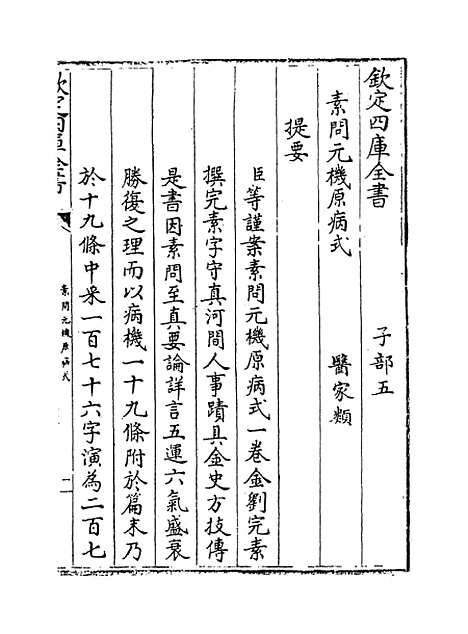 欽定四庫全書　子部五
素問元機原病式　醫家類
提要
臣等謹案素問元機原病式一卷金劉完素
撰完素字守真河間人事蹟具金史方技傳
是書因素問至真要論詳言五運六氣盛衰
勝復之理而以病機一十九條附於篇末乃
於十九條中采一百七十六字演為二百七
素問元機原病式